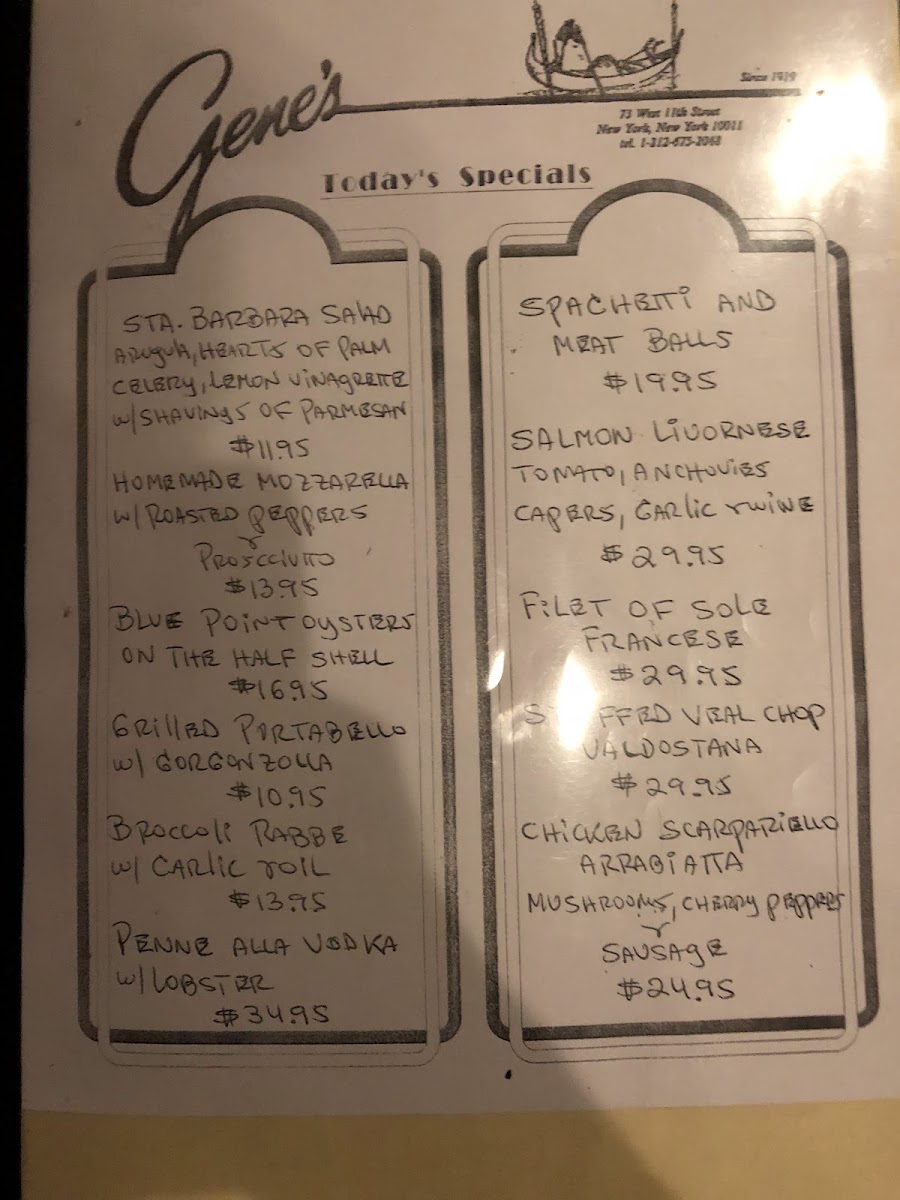 Gene's
Since 1919
73 West 11th Street
New York, New York 10011
tel. 1-212-675-2068
Today's Specials
STA. BARBARA SALAD
ARUGULA, HEARTS OF PALM
CELERY, LEMON VINAGRETTE
W/SHAVINGS OF PARMESAN
$11.95
HOMEMADE MOZZARELLA
W/ ROASTED PEPPERS
&
PROSCCIUTTO
$13.95
BLUE POINT OYSTERS
ON THE HALF SHELL
$16.95
GRILLED PORTABELLO
W/ GORGONZOLLA
$10.95
BROCCOLI RABBE
W/ GARLIC & OIL
$13.95
PENNE ALLA VODKA
W/ LOBSTER
$34.95
SPAGHETTI AND
MEAT BALLS
$19.95
SALMON LIVORNESE
TOMATO, ANCHOVIES
CAPERS, GARLIC & WINE
$29.95
FILET OF SOLE
FRANCESE
$29.95
STUFFED VEAL CHOP
VALDOSTANA
$29.95
CHICKEN SCARPARIELLO
ARRABIATTA
MUSHROOMS, CHERRY PEPPERS
&
SAUSAGE
$24.95